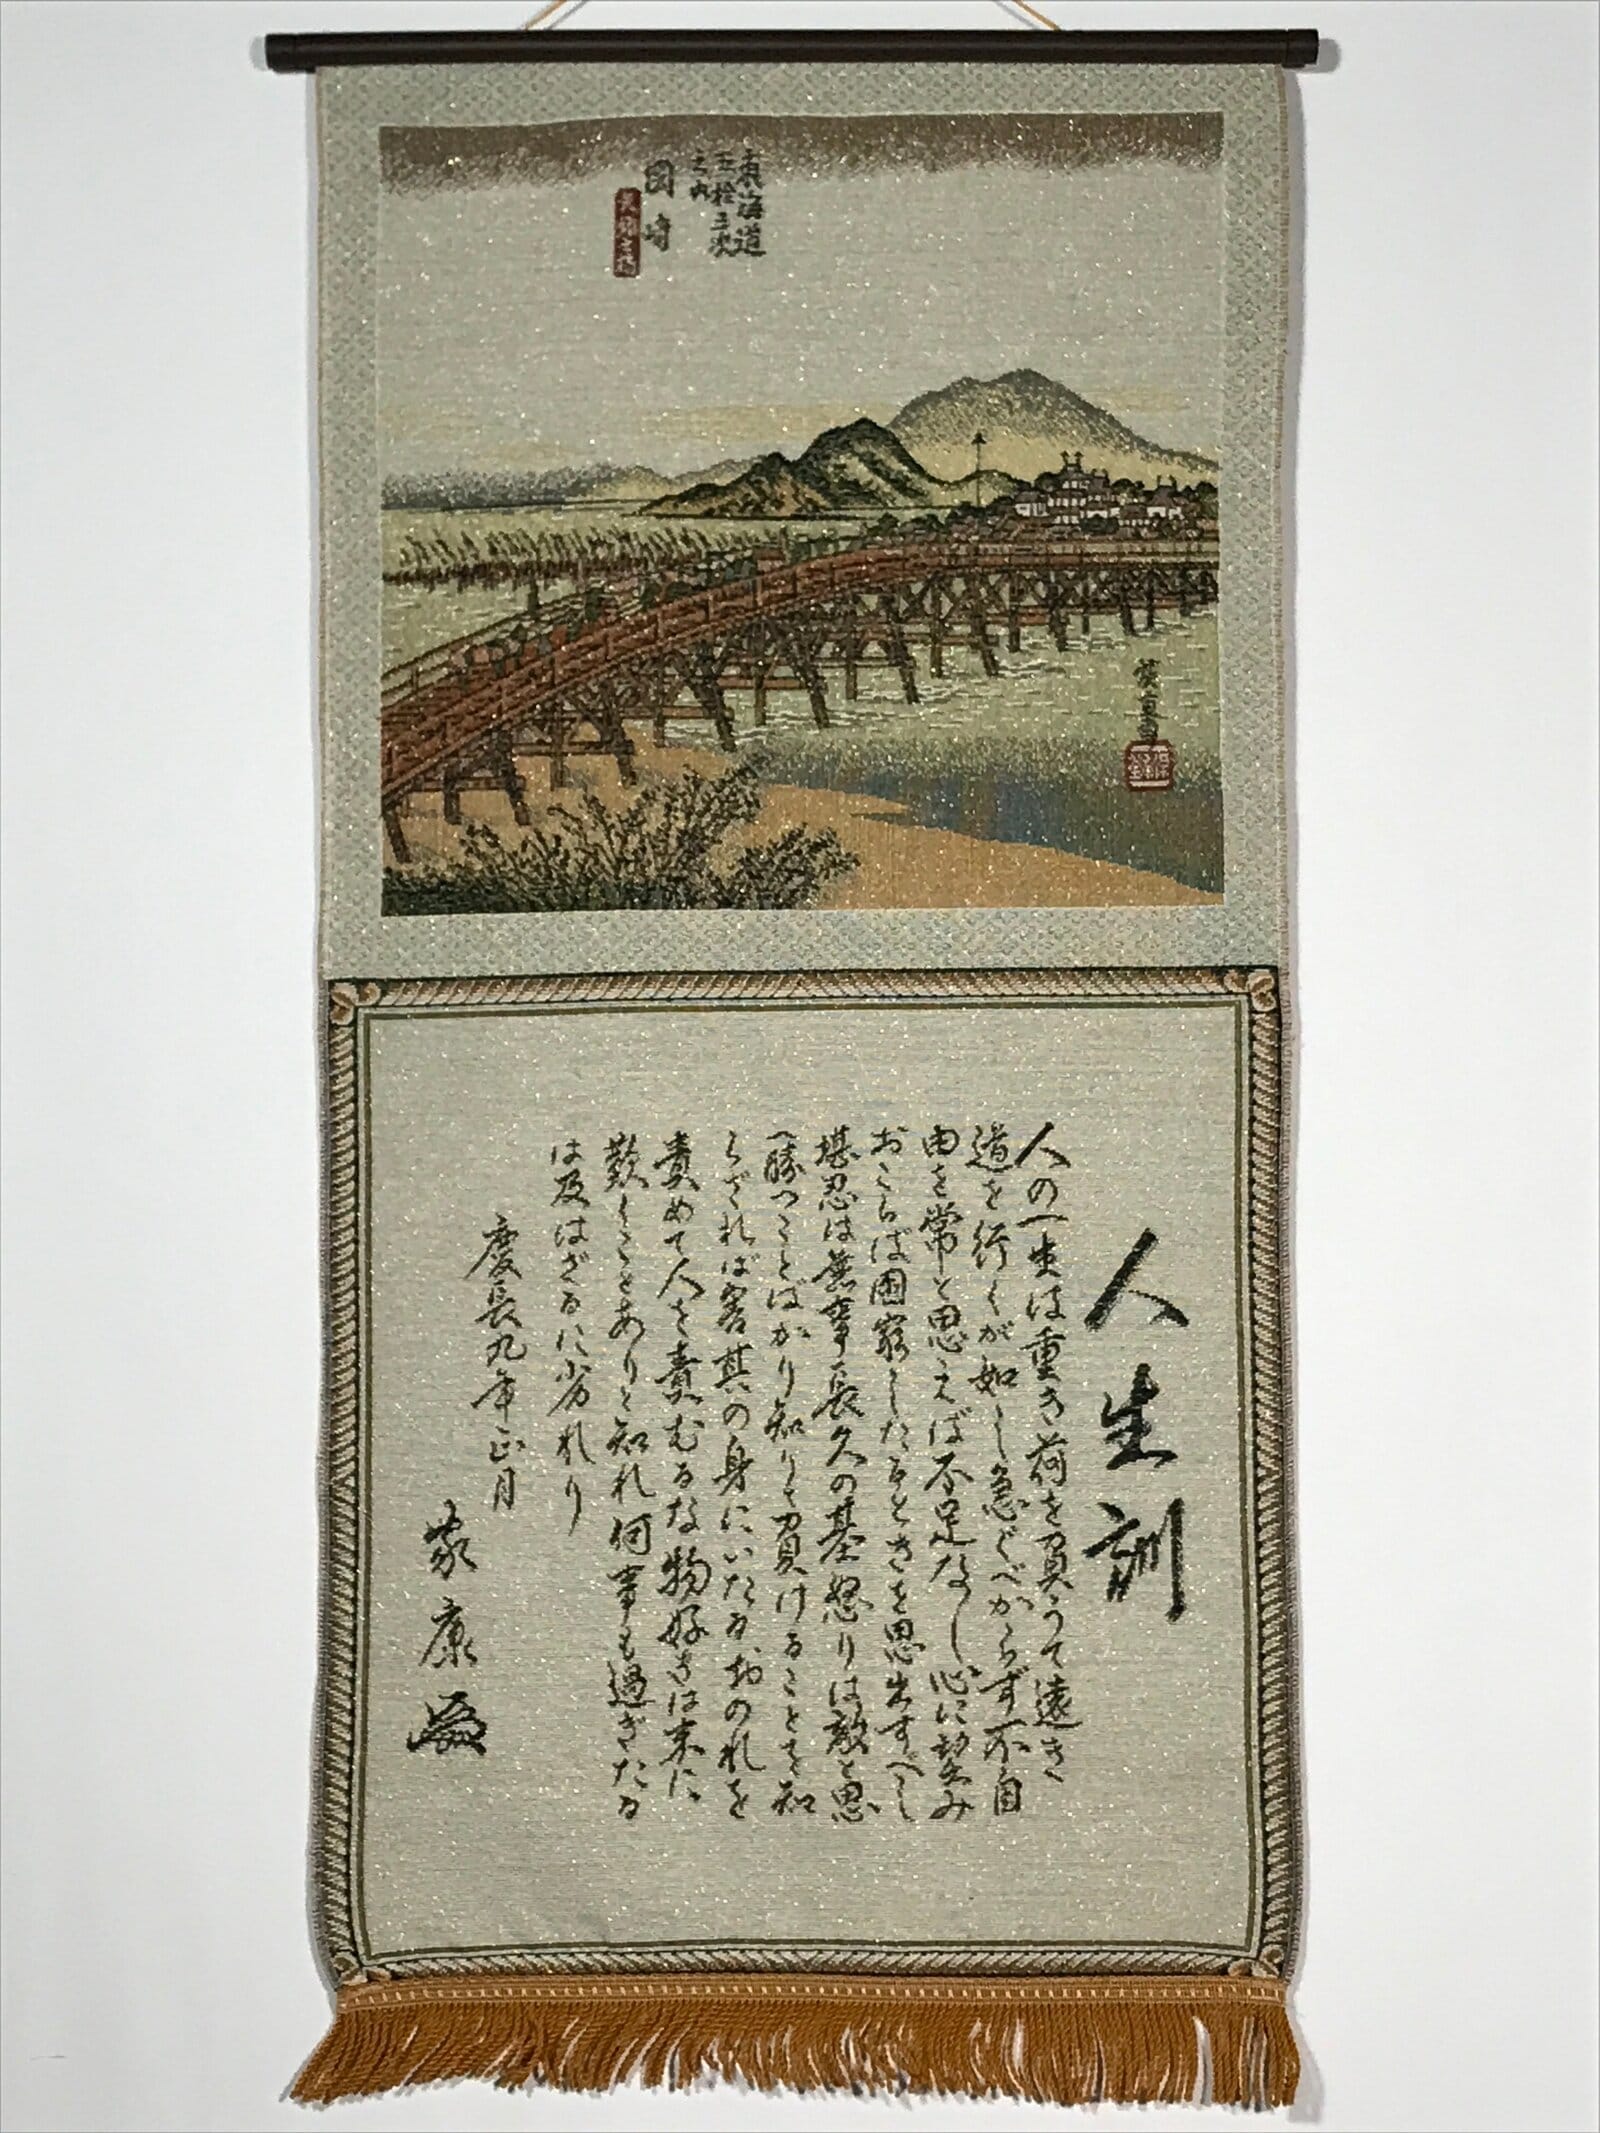 東海道
五拾三次
之内
岡崎
矢矧之橋
廣重画
人生訓
人の一生は重き荷を負うて遠き
道を行くが如し急ぐべからず不自
由を常と思えば不足なし心に望み
おこらば困窮したるときを思出すべし
堪忍は無事長久の基怒りは敵と思
へ勝つことばがり知りて負けることを知
らざれば害其の身にいたるおのれを
責めて人を責むるな物好きは末に
歎くことありと知れ何事も過ぎたる
は及はざるに劣れり
慶長九年正月
家康